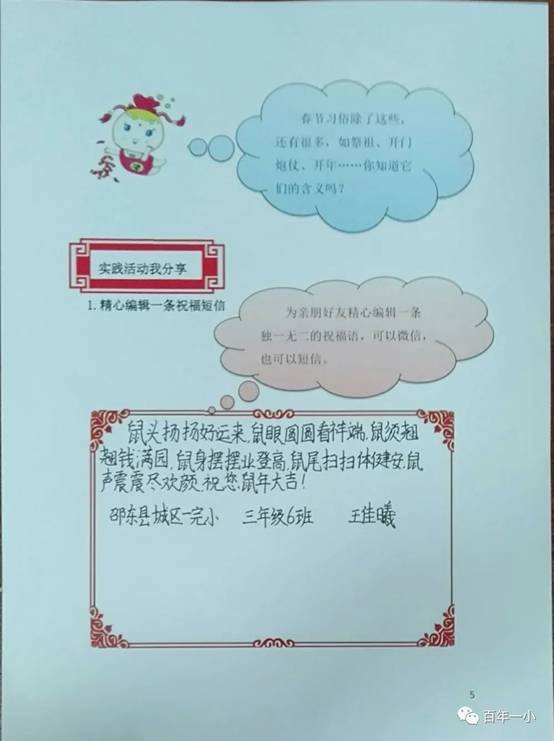 春节习俗除了这些，
还有很多，如祭祖、开门
炮仗、开年……你知道它
们的含义吗？
实践活动我分享
1.精心编辑一条祝福短信
为亲朋好友精心编辑一条
独一无二的祝福语，可以微信，
也可以短信。
鼠头扬扬好运来，鼠眼圆圆看祥端，鼠须翘
翘钱满园，鼠身摆摆业登高，鼠尾扫扫体健安，鼠
声震震尽欢颜，祝您鼠年大吉！
邵东县城区一完小 三年级6班 王佳曦
5
百年一小